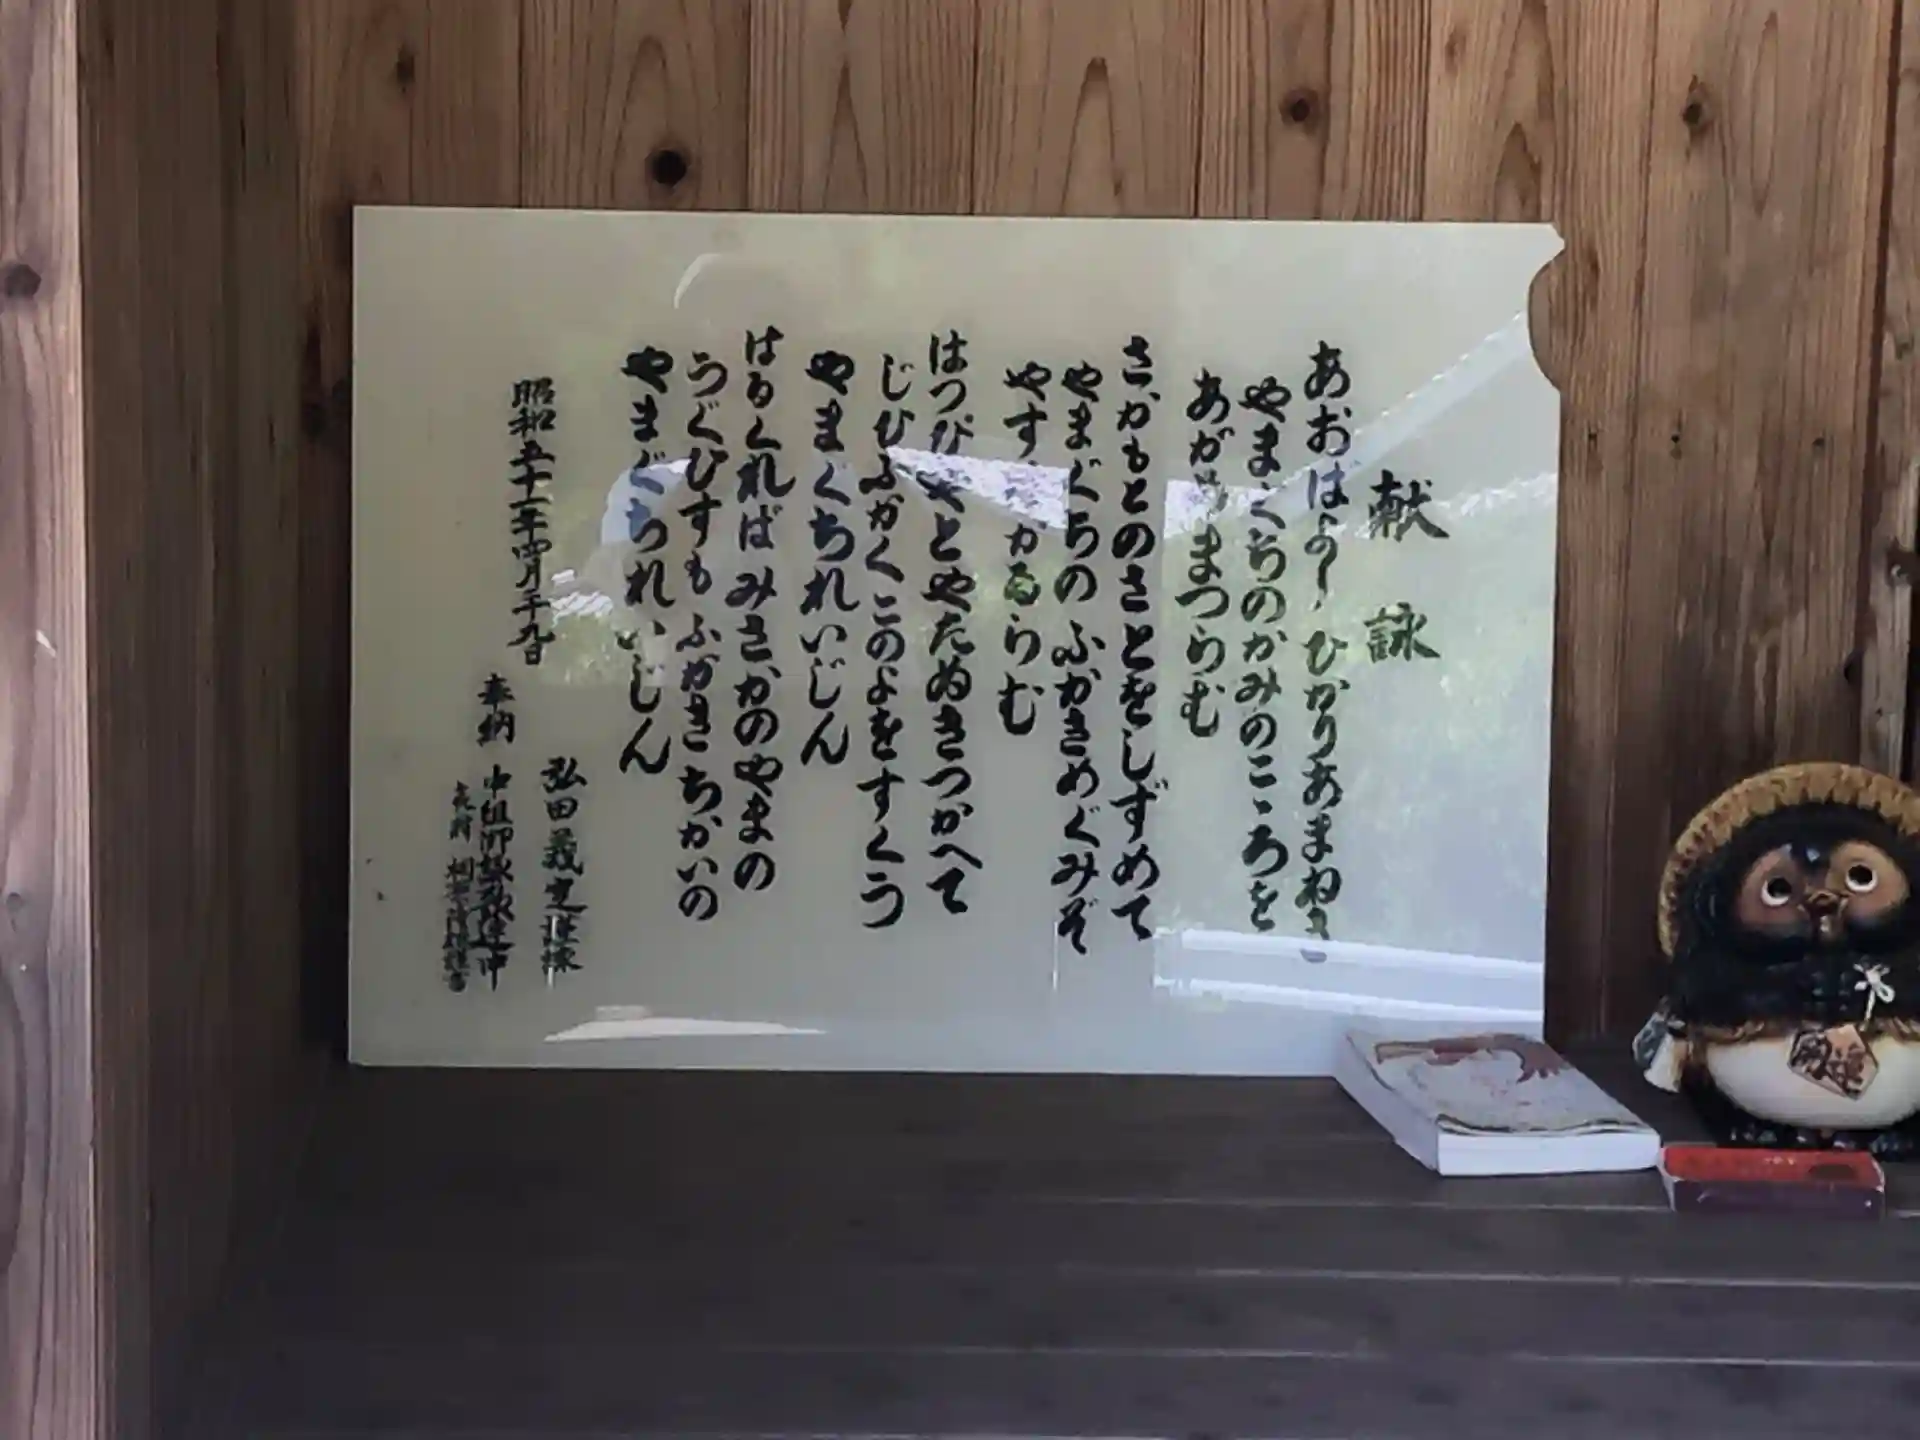 献詠
あおばよし ひかりあまねき
やまぐちのかみのこころを
あがめまつらむ
さかもとのさとをしずめて
やまぐちの ふかきめぐみぞ
やすけかるらむ
はつびさとやたぬきつかへて
じひふかくこのよをすくう
やまぐちれいじん
はるくれば みさかのやまの
うぐひすも ふかきちかいの
やまぐちれいじん
昭和五十一年四月二十九日
弘田義定謹詠
奉納 中組御詠歌連中
開運